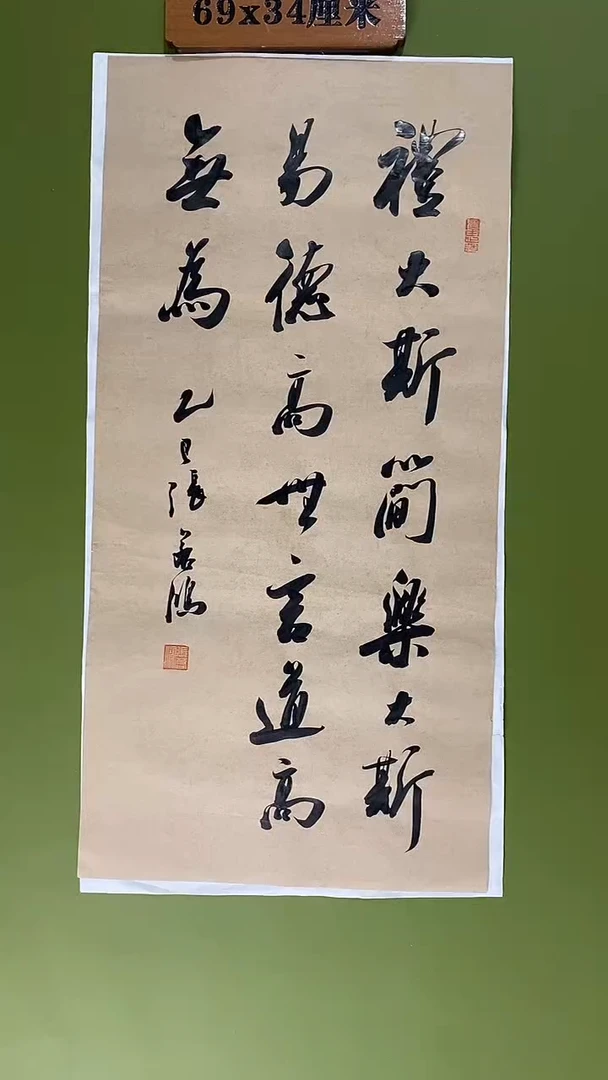 69x34厘米
禮大斯簡樂大斯
易德高世言道高
無為
乙巳張若鴻